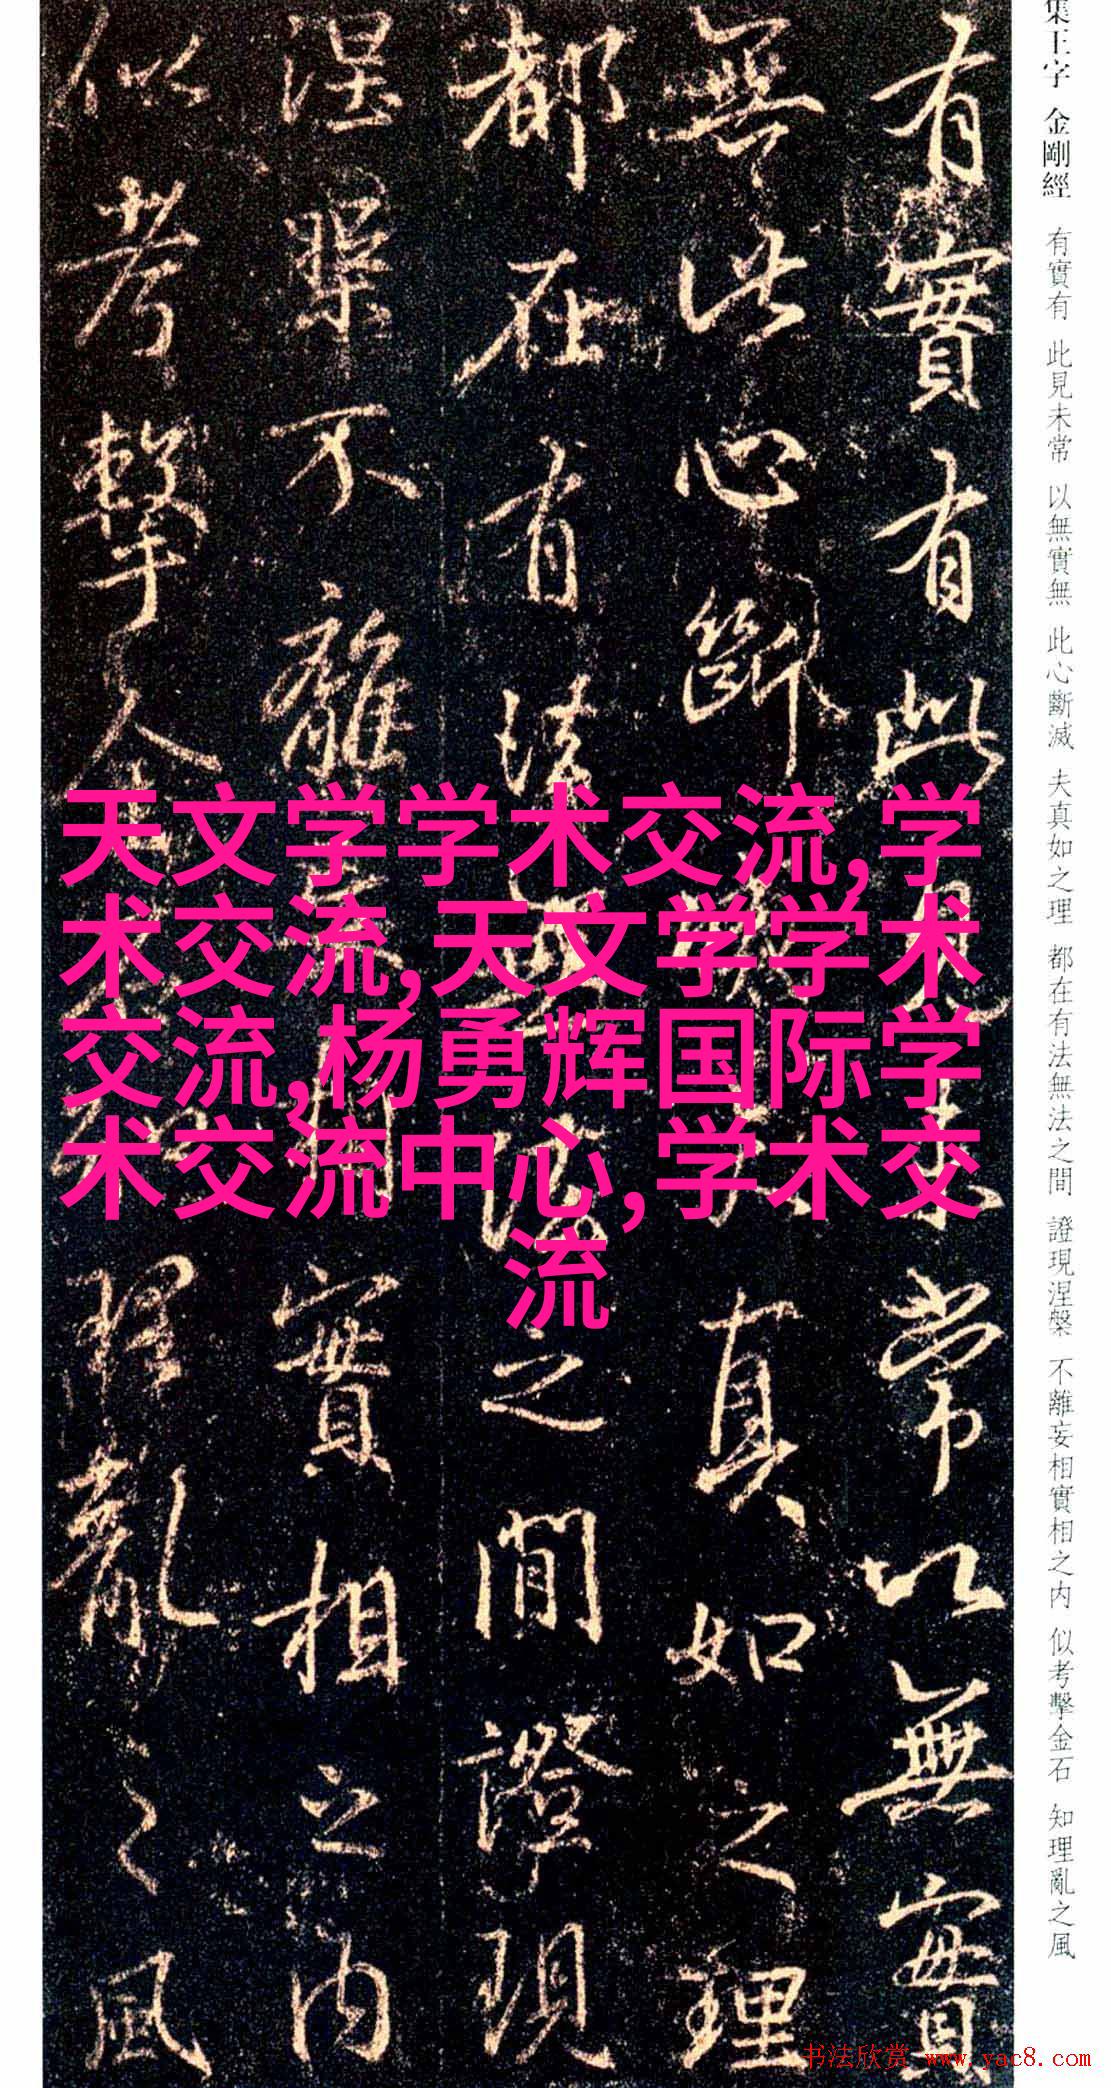 集王字 金剛經 有實有 此見未常 以無實無 此心斷滅 夫真如之理 都在有法無法之間 證現涅槃 不離妄相實相之内 似考擊金石 知理亂之風
有實有此見未常以無實
無此心斷滅夫真如之理
都在有法無法之間證現
涅槃不離妄相實相之内
似考擊金石知理亂之風
天文学学术交流,学
术交流,天文学学术
交流,杨勇辉国际学
术交流中心,学术交
流
书法欣赏 www.yac8.com